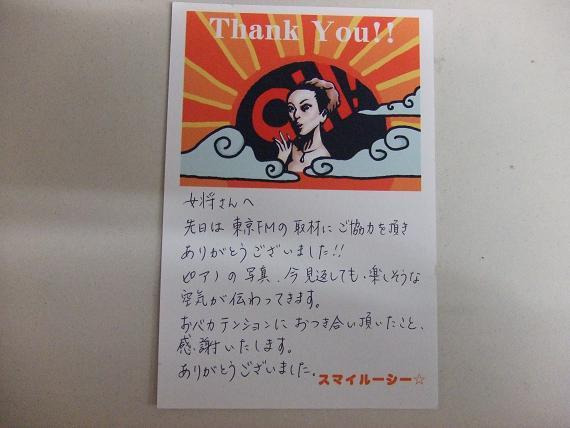 Thank You!!
女将さんへ
先日は東京FMの取材にご協力を頂き
ありがとうございました!!
ピアノの写真、今見返しても、楽しそうな
空気が伝わってきます。
おバカテンションにおつき合い頂いたこと、
感謝いたします。
ありがとうございました。
スマイルーシー☆